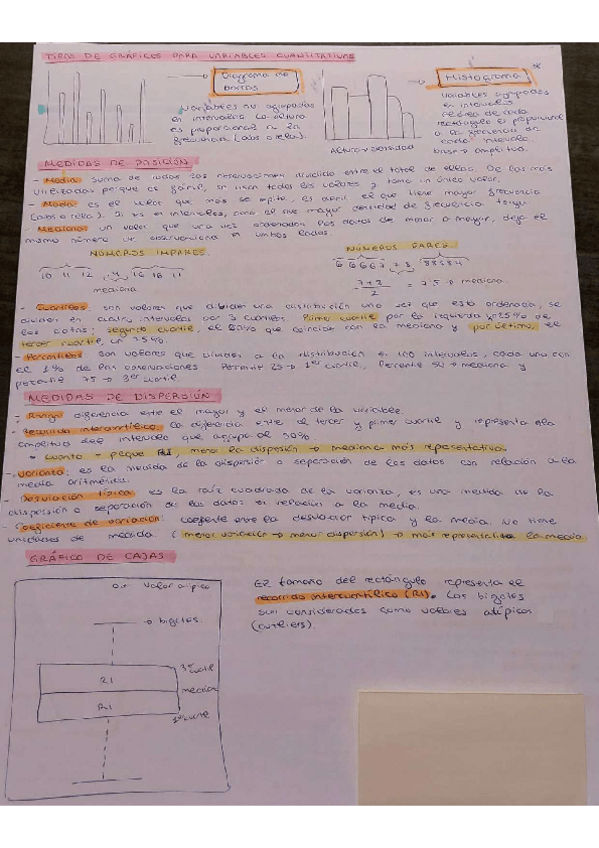 TIPOS DE GRÁFICOS PARA VARIABLES CUANTITATIVAS
Diagrama de
barras
Variables no agrupadas
en intervalos. La altura
es proporcional a la
frecuencia (abs o rela).
Histograma
variables agrupadas
en intervalos
el área de cada
rectángulo es proporcional
a la frecuencia de
cada intervalo
base → amplitud.
Altura → densidad
MEDIDAS DE POSICIÓN
- Media: suma de todas las observaciones dividido entre el total de ellas. Es la más
utilizada porque es fácil, se usan todos los valores y toma un único valor.
- Moda: es el valor que más se repite, es decir el que tiene mayor frecuencia
(abs o rela). Si es en intervalos, será el que mayor densidad de frecuencia tenga
- Mediana: un valor que una vez ordenados los datos de menor a mayor, deja el
mismo número de observaciones a ambos lados.
NÚMEROS IMPARES
10 11 12 14 16 18 11
mediana
NÚMEROS PARES
6 6 6 6 7 8 8 8
7+8
2
= 7.5 → mediana
- Cuartiles: son valores que dividen una distribución una vez que está ordenada, se
dividen en cuatro intervalos por 3 cuartiles. Primer cuartil por la izquierda el 25% de
los datos; segundo cuartil, el 50% que coincide con la mediana y por último, el
tercer cuartil, un 75%
- Percentiles: son valores que dividen a la distribución en 100 intervalos, cada uno con
el 1% de las observaciones. Percentil 25 → 1er cuartil, Percentil 50 → mediana y
percentil 75 → 3er cuartil.
MEDIDAS DE DISPERSIÓN
- Rango: diferencia entre el mayor y el menor de la variable.
- Recorrido intercuartílico: la diferencia entre el tercer y primer cuartil y representa la
amplitud del intervalo que agrupa el 50%.
cuanto + peque RI, menor la dispersión → mediana más representativa
- Varianza: es la medida de la dispersión o separación de los datos con relación a la
media aritmética.
- Desviación típica: es la raíz cuadrada de la varianza, es una medida de la
dispersión o separación de los datos en relación a la media.
- Coeficiente de variación: cociente entre la desviación típica y la media. No tiene
unidades de medida. (menor variación → menor dispersión) → más representativa la media
GRÁFICO DE CAJAS
o → valor atípico
→ bigotes
3er cuartil
RI
mediana
RI
1er cuartil
El tamaño del rectángulo representa el
recorrido intercuartílico (RI). Los bigotes
son considerados como valores atípicos
(outliers).